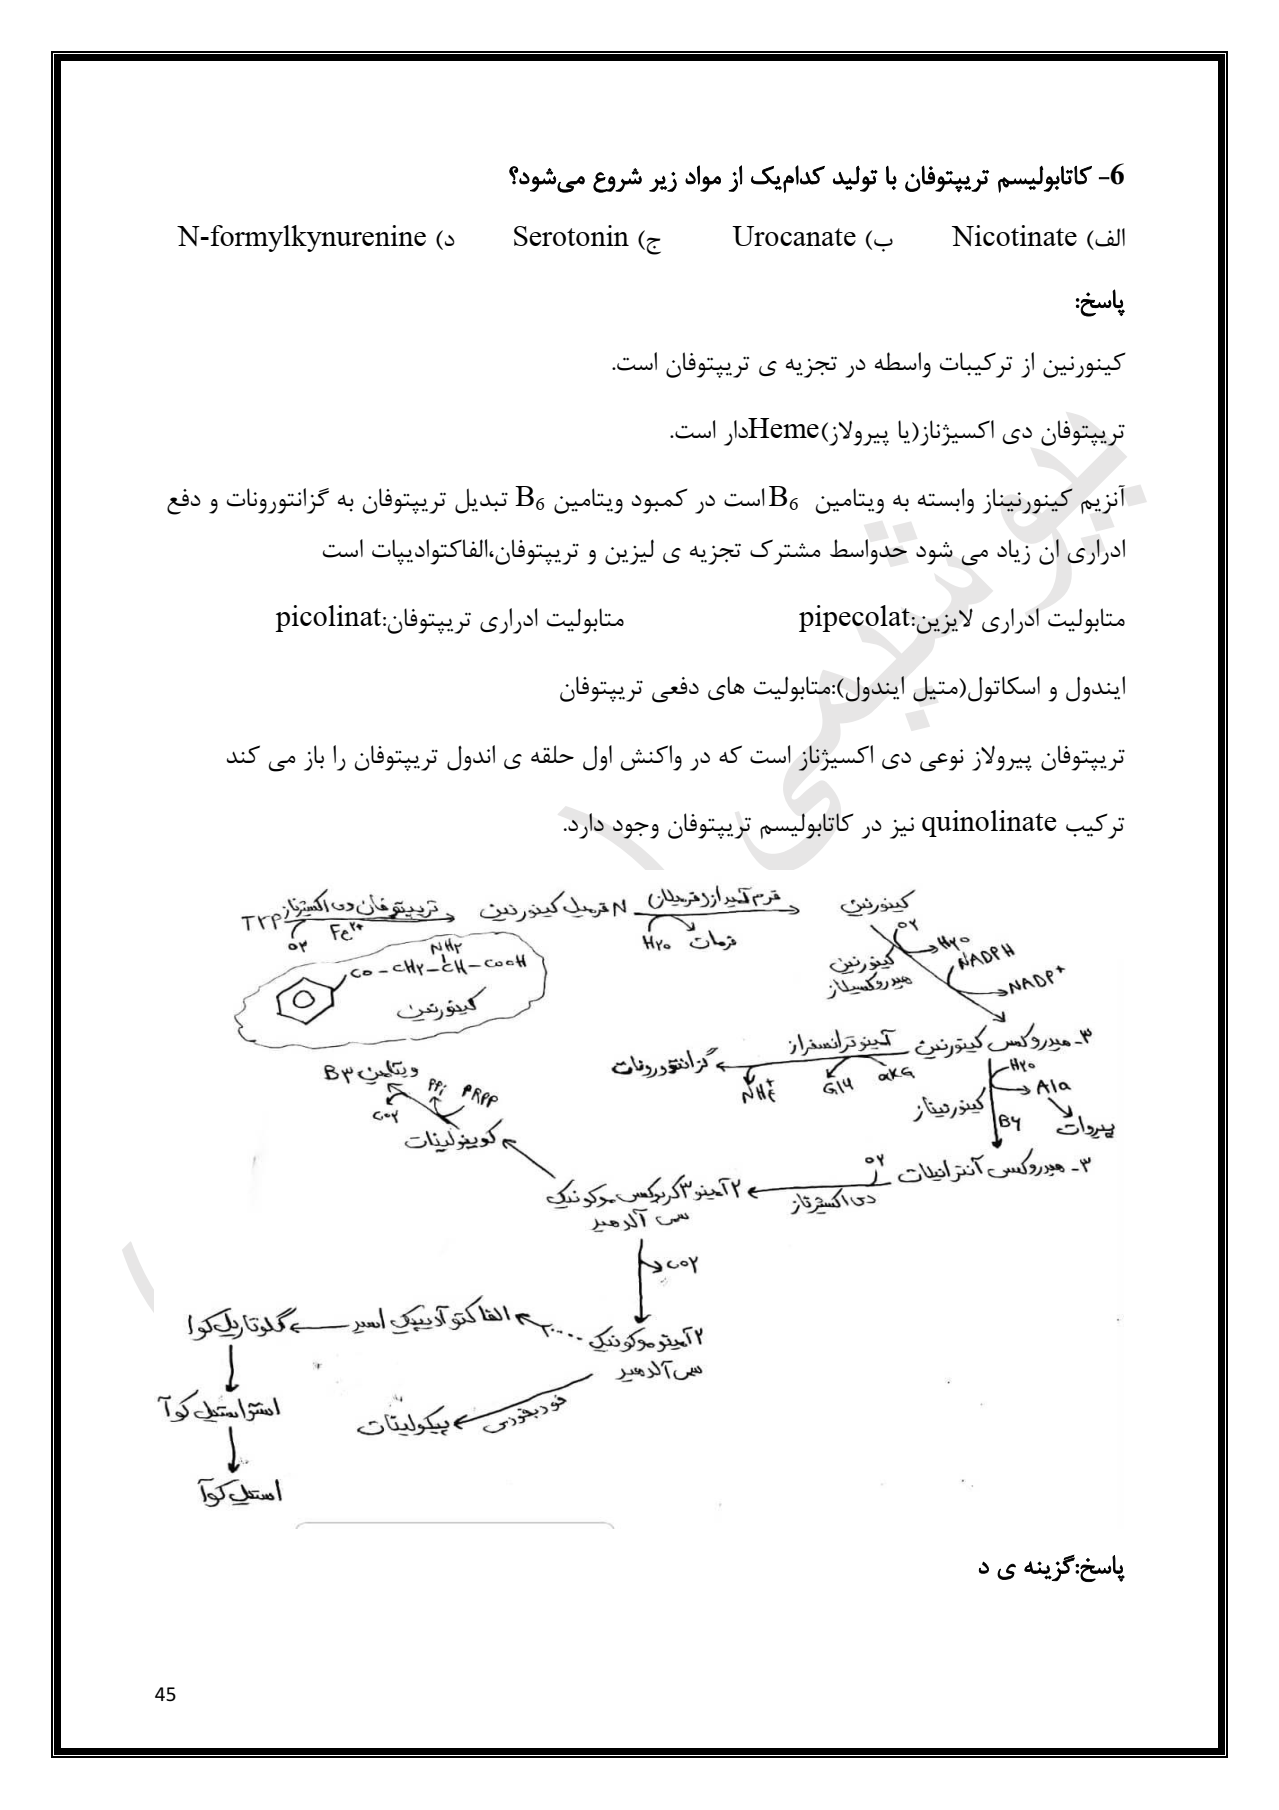 6- کاتابولیسم تریپتوفان با تولید کدام‌یک از مواد زیر شروع می‌شود؟
الف) Nicotinate ب) Urocanate ج) Serotonin د) N-formylkynurenine
پاسخ:
کینورنین از ترکیبات واسطه در تجزیه ی تریپتوفان است.
تریپتوفان دی اکسیژناز(یا پیرولاز)Hemeدار است.
آنزیم کینورنیناز وابسته به ویتامین B6است در کمبود ویتامین B6 تبدیل تریپتوفان به گزانتورونات و دفع
ادراری ان زیاد می شود حدواسط مشترک تجزیه ی لیزین و تریپتوفان،الفاکتوادیپات است
متابولیت ادراری لایزین:pipecolat متابولیت ادراری تریپتوفان:picolinat
ایندول و اسکاتول(متیل ایندول):متابولیت های دفعی تریپتوفان
تریپتوفان پیرولاز نوعی دی اکسیژناز است که در واکنش اول حلقه ی اندول تریپتوفان را باز می کند
ترکیب quinolinate نیز در کاتابولیسم تریپتوفان وجود دارد.
Trp تریپتوفان دی اکسیژناز N فرمیل کینورنین فرم آمیداز/فرمیلاز کینورنین
O۲ Fe۲+ H۲O فرمات O۲ H۲O
کینورنین هیدروکسیلاز NADPH NADP+
CO - CH۲ - CH - COOH
NH۲
کینورنین
۳- هیدروکسی کینورنین آمینوترانسفراز گزانتورونات
αKG Glu NH۴+
H۲O Ala پیروات
کینورنیناز B۶
ویتامین B۳
PPi PRPP CO۲
کوینولینات
۳- هیدروکسی آنترانیلات O۲ دی اکسیژناز ۲آمینو۳کربوکسی موکونیک
سمی آلدهید
CO۲
۲آمینوموکونیک الفاکتوآدیپیک اسید گلوتاریل کوا
سمی آلدهید
خودبخودی پیکولینات
استواستیل کوآ
استیل کوآ
پاسخ:گزینه ی د
45